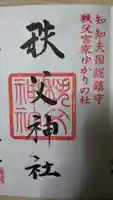 知知夫国総鎮守
秩父宮家ゆかりの社
秩父神社
秩父神社